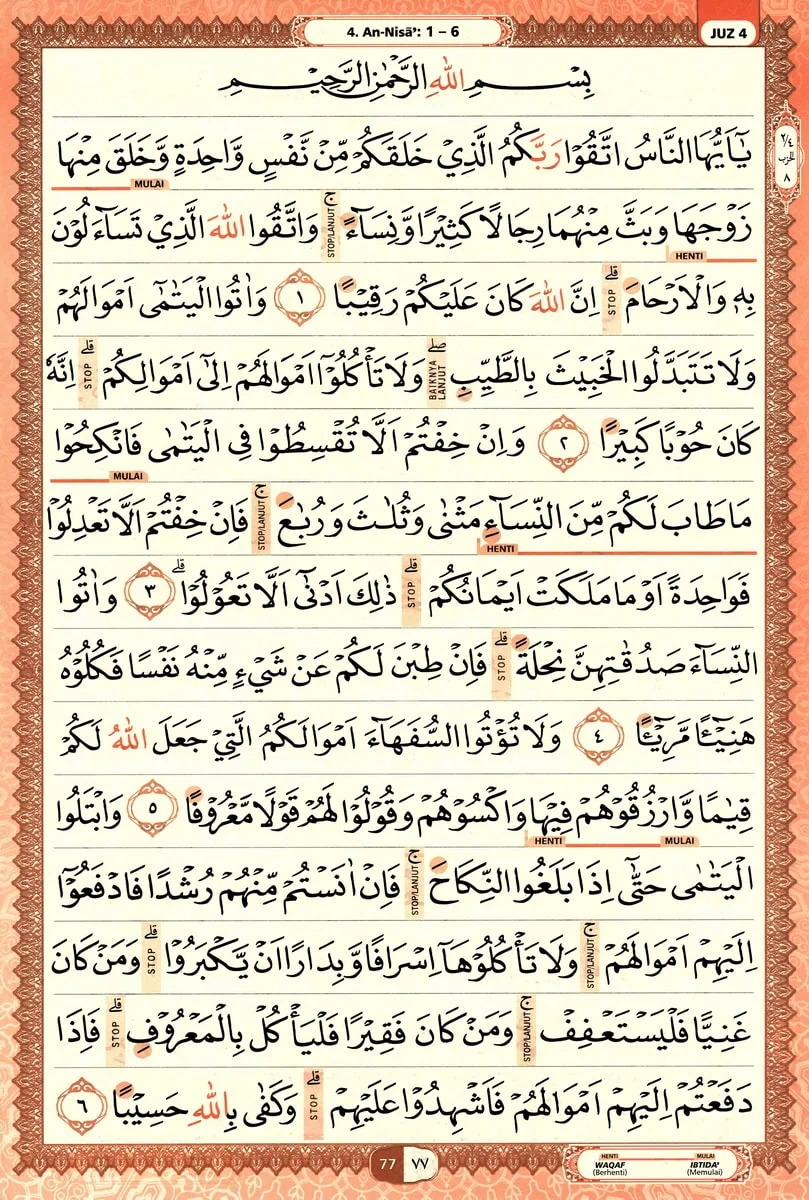 4. An-Nisā': 1 – 6
JUZ 4
٢/٤
الحزب
٨
بِسْمِ اللّٰهِ الرَّحْمٰنِ الرَّحِيْمِ
يٰٓاَيُّهَا النَّاسُ اتَّقُوْا رَبَّكُمُ الَّذِيْ خَلَقَكُمْ مِّنْ نَّفْسٍ وَّاحِدَةٍ وَّخَلَقَ مِنْهَا
MULAI
زَوْجَهَا وَبَثَّ مِنْهُمَا رِجَالًا كَثِيْرًا وَّنِسَاۤءً ۚ STOP/LANJUT وَاتَّقُوا اللّٰهَ الَّذِيْ تَسَاۤءَلُوْنَ
HENTI
بِهٖ وَالْاَرْحَامَ ۗ STOP اِنَّ اللّٰهَ كَانَ عَلَيْكُمْ رَقِيْبًا ١ وَاٰتُوا الْيَتٰمٰٓى اَمْوَالَهُمْ
وَلَا تَتَبَدَّلُوا الْخَبِيْثَ بِالطَّيِّبِ ۖ BAIKNYA LANJUT وَلَا تَأْكُلُوْٓا اَمْوَالَهُمْ اِلٰٓى اَمْوَالِكُمْ ۗ STOP اِنَّهٗ
كَانَ حُوْبًا كَبِيْرًا ٢ وَاِنْ خِفْتُمْ اَلَّا تُقْسِطُوْا فِى الْيَتٰمٰى فَانْكِحُوْا
MULAI
مَا طَابَ لَكُمْ مِّنَ النِّسَاۤءِ مَثْنٰى وَثُلٰثَ وَرُبٰعَ ۚ STOP/LANJUT فَاِنْ خِفْتُمْ اَلَّا تَعْدِلُوْا
HENTI
فَوَاحِدَةً اَوْ مَا مَلَكَتْ اَيْمَانُكُمْ ۗ STOP ذٰلِكَ اَدْنٰٓى اَلَّا تَعُوْلُوْاۗ ٣ وَاٰتُوا
النِّسَاۤءَ صَدُقٰتِهِنَّ نِحْلَةً ۗ STOP فَاِنْ طِبْنَ لَكُمْ عَنْ شَيْءٍ مِّنْهُ نَفْسًا فَكُلُوْهُ
هَنِيْۤـًٔا مَّرِيْۤـًٔا ٤ وَلَا تُؤْتُوا السُّفَهَاۤءَ اَمْوَالَكُمُ الَّتِيْ جَعَلَ اللّٰهُ لَكُمْ
قِيٰمًا وَّارْزُقُوْهُمْ فِيْهَا وَاكْسُوْهُمْ وَقُوْلُوْا لَهُمْ قَوْلًا مَّعْرُوْفًا ٥ وَابْتَلُوا
MULAI HENTI
الْيَتٰمٰى حَتّٰىٓ اِذَا بَلَغُوا النِّكَاحَ ۚ STOP/LANJUT فَاِنْ اٰنَسْتُمْ مِّنْهُمْ رُشْدًا فَادْفَعُوْٓا
اِلَيْهِمْ اَمْوَالَهُمْ ۚ STOP/LANJUT وَلَا تَأْكُلُوْهَآ اِسْرَافًا وَّبِدَارًا اَنْ يَّكْبَرُوْا ۗ STOP وَمَنْ كَانَ
غَنِيًّا فَلْيَسْتَعْفِفْ ۚ STOP/LANJUT وَمَنْ كَانَ فَقِيْرًا فَلْيَأْكُلْ بِالْمَعْرُوْفِ ۗ STOP فَاِذَا
دَفَعْتُمْ اِلَيْهِمْ اَمْوَالَهُمْ فَاَشْهِدُوْا عَلَيْهِمْ ۗ STOP وَكَفٰى بِاللّٰهِ حَسِيْبًا ٦
77 ٧٧
HENTI MULAI
WAQAF IBTIDA'
(Berhenti) (Memulai)